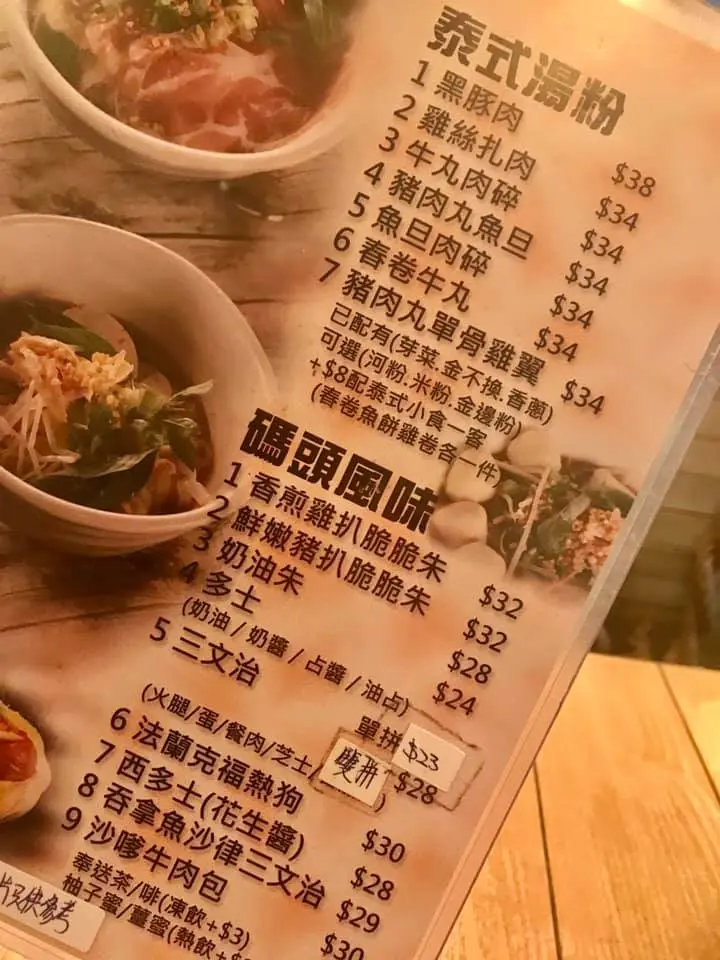 泰式湯粉
1 黑豚肉 $38
2 雞絲扎肉 $34
3 牛丸肉碎 $34
4 豬肉丸魚旦 $34
5 魚旦肉碎 $34
6 春卷牛丸 $34
7 豬肉丸單骨雞翼 $34
已配有(芽菜.金不換.香蔥)
可選(河粉.米粉.金邊粉)
+$8配泰式小食一客
(春卷魚餅雞卷各一件)
碼頭風味
1 香煎雞扒脆脆朱 $32
2 鮮嫩豬扒脆脆朱 $32
3 奶油朱 $28
4 多士 $24
(奶油/奶醬/占醬/油占)
5 三文治 單拼 $23
(火腿/蛋/餐肉/芝士) 雙拼 $28
6 法蘭克福熱狗 $30
7 西多士(花生醬) $28
8 吞拿魚沙律三文治 $29
9 沙嗲牛肉包 $30
奉送茶/啡(凍飲+$3)
柚子蜜/薑蜜(熱飲+$